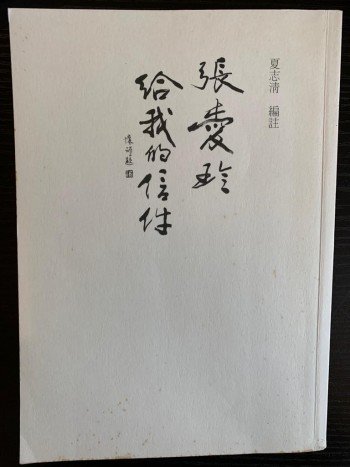 夏志清 編註
張愛玲
給我的信件